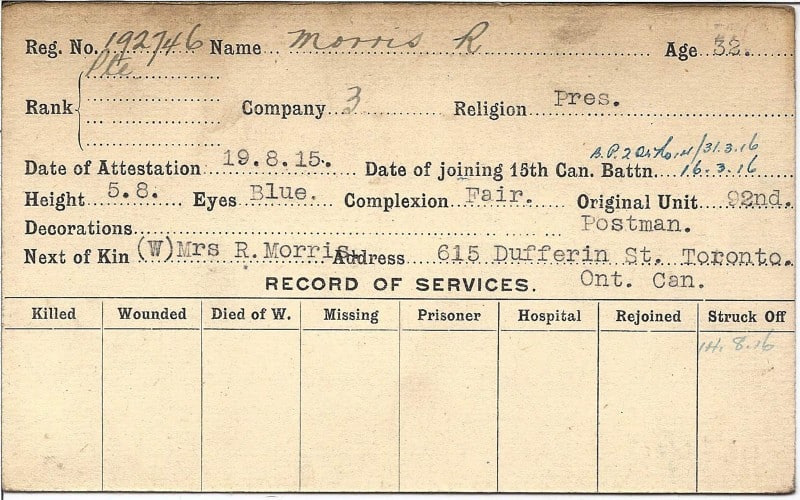 Reg. No. 192746 Name Morris R Age 32.
Pte
Rank Company 3 Religion Pres.
31.3.16
Date of Attestation 19.8.15. Date of joining 15th Can. Battn. 16.3.16
Height 5.8. Eyes Blue. Complexion Fair. Original Unit 92nd.
Decorations Postman.
Next of Kin (W) Mrs R. Morris. Address 615 Dufferin St. Toronto.
Ont. Can.
RECORD OF SERVICES.
Killed Wounded Died of W. Missing Prisoner Hospital Rejoined Struck Off
14.8.16